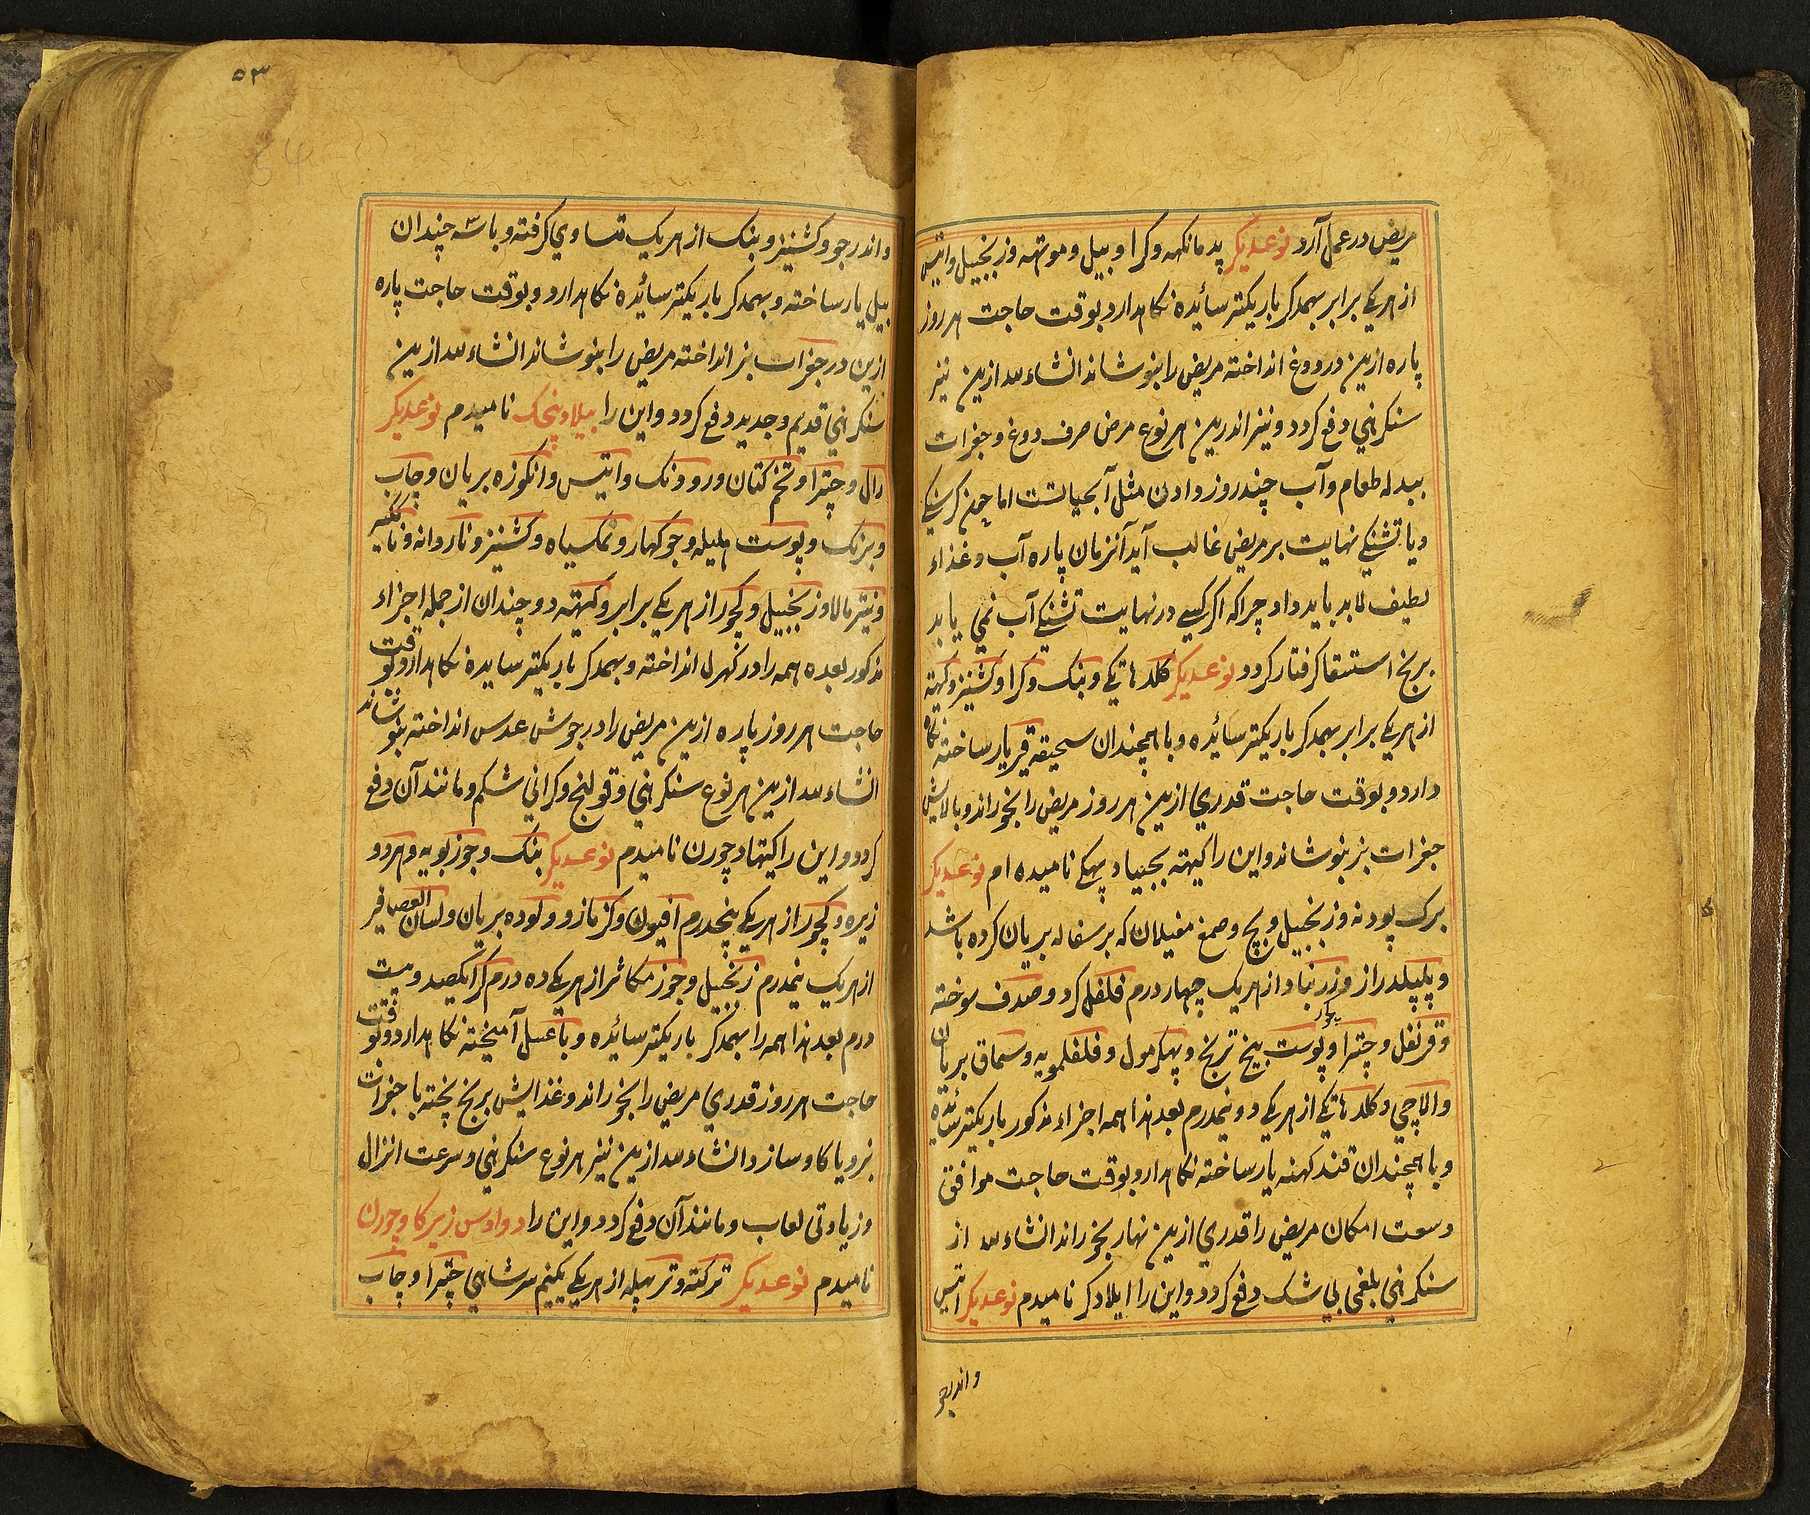 مریض در عمل آرد نوعدیکر پدمانکهه وکرا وبیل وموتهه وزنجبیل واتیس
از هریکے برابر بهمدکر باریکتر سائیده نکاهدارد بوقت حاجت هر روز
پاره ازین در دوغ انداخته مریض را بنوشاند انشاءالله ازین نیز
سنکرهني دفع کردد ونیز اندرین هر نوع مرض صرف دوغ وجغرات
ببدله طعام وآب چند روز دادن مثل آبحیاتست اما چون کرسنکے
ویا تشنکے نهایت بر مریض غالب آید آنزمان پاره آب وغذاء
لطیف لابد باید داد چراکه اکر کسے در نهایت تشنکے آب نمي یابد
برنج استسقا کرفتار کردد نوعدیکر کلدهاتکے وبنک وکرا وکشنیز وکهته
از هریکے برابر بهمدکر باریکتر سائیده وباهمچندان سحیقه قر یار ساخته نکاه
دارد وبوقت حاجت قدري ازین هر روز مریض را بخوراند وبالایش
جغرات بز بنوشاند واین را کهته بجنیاد پهکے نامیده ام نوعدیکر
برک پودنه وزنجبیل وبچ وصمغ مغیلان که برسفاله بریان کرده باشد
وپلپلدراز وزرنباد از هریک چهار درم فلفل کرد وصدف سوخته
وقرنفل وچترا وپوست بیخ ترنج وپهکرمول وفلفلمویه وسماق بریان
والاچي وکلدهاتکے از هریکے دونیمدرم بعد هذا همه اجزاء مذکور باریکتر سائیده
وباهمچندان قند کهنه یار ساخته نکاهدارد وبوقت حاجت موافق
وسعت امکان مریض را قدري ازین نهار بخوراند انشاءالله از
سنکرهني بلغمي بي شک دفع کردد واین را ایلادکر نامیدم نوعدیکر اتیس
واندرجو
۵۳
واندرجو وکشنیز وبنک از هریک تساوي کرفته وباسه چندان
بیل یار ساخته وبهمدکر باریکتر سائیده نکاهدارد وبوقت حاجت پاره
ازین در جغرات بز انداخته مریض را بنوشاند انشاءالله ازین
سنکرهني قدیم وجدید دفع کردد واین را بیلاد پنچک نامیدم نوعدیکر
رال وچترا وتخم کتان ورودنک واتیس وانکوزه بریان وچاب
وبرنک وپوست هلیله وجوکهار ونمکسیاه وکشنیز وناردانه وناکیسر
ونیتربالا وزنجبیل وکچور از هریکے برابر وکهته دوچندان از جمله اجزاء
مذکور بعده همه را در کهرل انداخته وبهمدکر باریکتر سایده نکاهدارد وبوقت
حاجت هر روز پاره ازین مریض را در جوش عدس انداخته بنوشاند
انشاءالله ازین هر نوع سنکرهني وقولنج وکراني شکم ومانند آن دفع
کردد واین را کپتهاد چورن نامیدم نوعدیکر بنک وجوزبویه وهردو
زیره وکچور از هریکے پنجدرم افیون وکزمازو ولوده بریان ولسان العصافیر
از هریک نیمدرم زنجبیل وجوز مکاثر از هریکے ده درم کرا یکصد وبیست
درم بعد هذا همه را بهمدکر باریکتر سائیده وبا عسل آمیخته نکاهدارد وبوقت
حاجت هر روز قدري مریض را بخوراند وغذایش برنج پخته با جغرات
بز ویا کاو سازد انشاءالله ازین نیز هر نوع سنکرهني وسرعت انزال
وزیادتي لعاب ومانند آن دفع کردد واین را دوادس زیرکا وچورن
نامیدم نوعدیکر ترکته وترپهله از هریکے یکنیم سرشاهي چترا وچاب